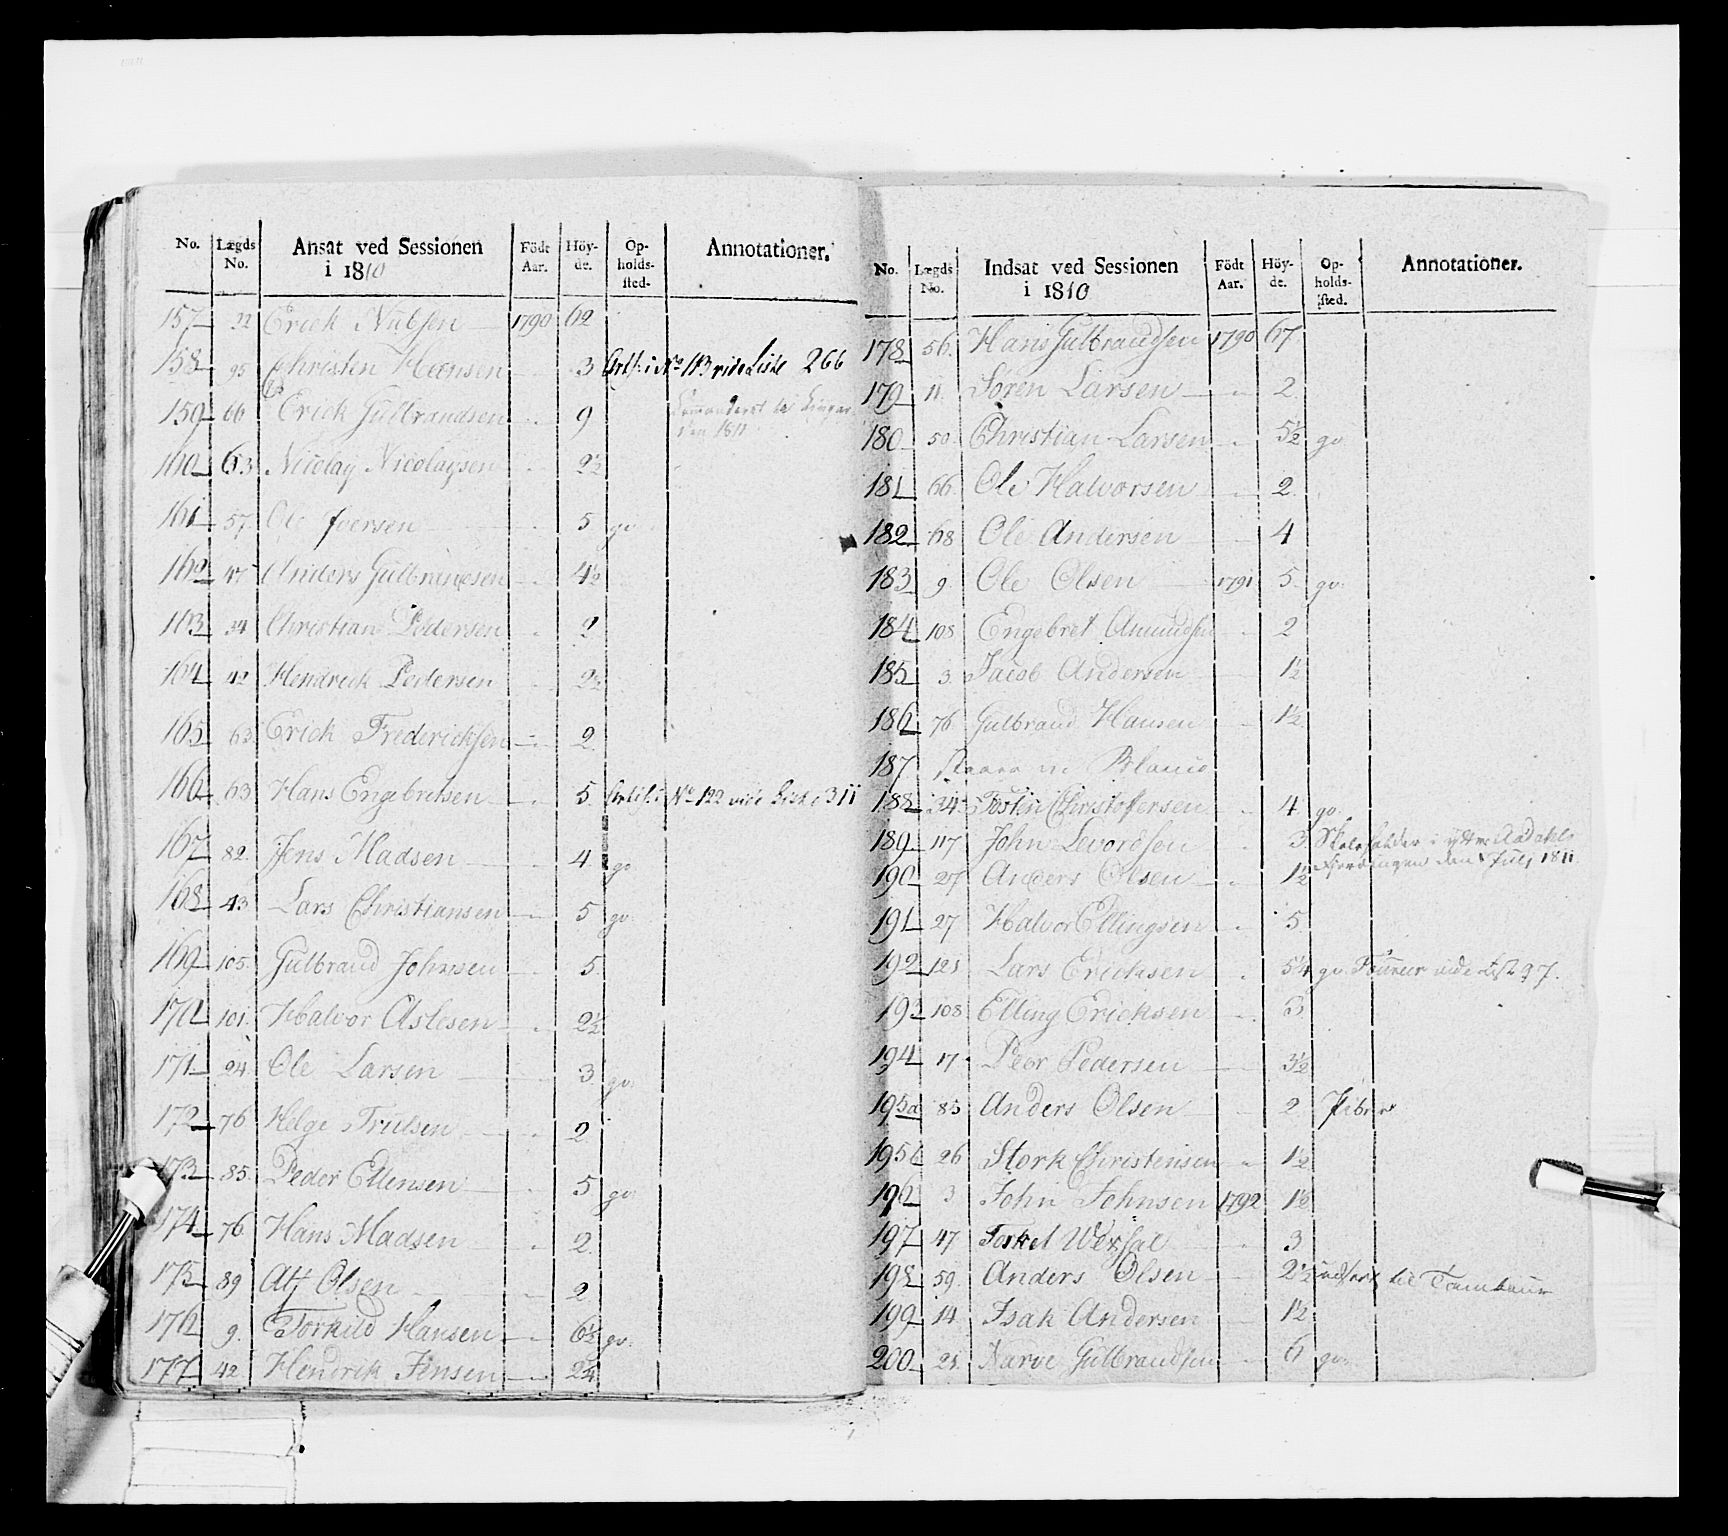 No. Lægds No. Ansat ved Sessionen i 1810 Födt Aar. Höy-de. Op-holds-sted. Annotationer.
157 32 Erick 1790 62
158 95 Christen Hansen 3 No 113 vide Liste 266
159 66 Erick Gulbrandsen 9 den 1811
160 63 Nicolay Nicolaysen 2½
161 57 Ole Iversen 5 go
162 47 Anders Gulbrandsen 4½
163 34 Christian Pedersen 2
164 42 Hendrick Pedersen 2½
165 63 Erick Fredericksen 2
166 63 Hans Engebretsen 5 No 122 vide Liste 311
167 82 Jens Madsen 4 go
168 43 Lars Christiansen 5 go
169 105 Gulbrand Johnsen 5
170 101 Halvor Aslesen 2½
171 24 Ole Larsen 3 go
172 76 Helge Trulsen 2
173 85 Peder Ellensen 5 go
174 76 Hans Madsen 2
175 89 Olsen 2
176 9 Torkild Hansen 6½ go
177 42 Hendrik Jensen 2¼
No. Lægds No. Indsat ved Sessionen i 1810 Födt Aar. Höy-de. Op-holds-sted. Annotationer.
178 56 Hans Gulbrandsen 1790 67
179 11 Soren Larsen 2
180 50 Christian Larsen 5½ go
181 66 Ole Halvorsen 2
182 68 Ole Andersen 4
183 9 Ole Olsen 1791 5 go
184 108 Engebret Amundsen 2
185 3 Jacob Andersen 1½
186 76 Gulbrand Hansen 1½
187 Staaer in Blanco
188 34 Tosten Christofersen 4 go
189 117 John 3 Skoleholder i ytter Aadahls
Fjerdingen den Julj 1811
190 27 Anders Olsen 1½
191 27 Halvor Ellingsen 5
192 121 Lars Ericksen 5¼ go Fourier vide
193 108 Elling Ericksen 3
194 17 Peer Pedersen 3½
195a 85 Anders Olsen 2 Piber
195b 26 Stork Christensen 1½
196 3 John Johnsen 1792 1½
197 47 Torkel 3
198 59 Anders Olsen 2½ udsat til Tambour
199 14 Isak Andersen 1½
200 21 Narve Gulbrandsen 6 go